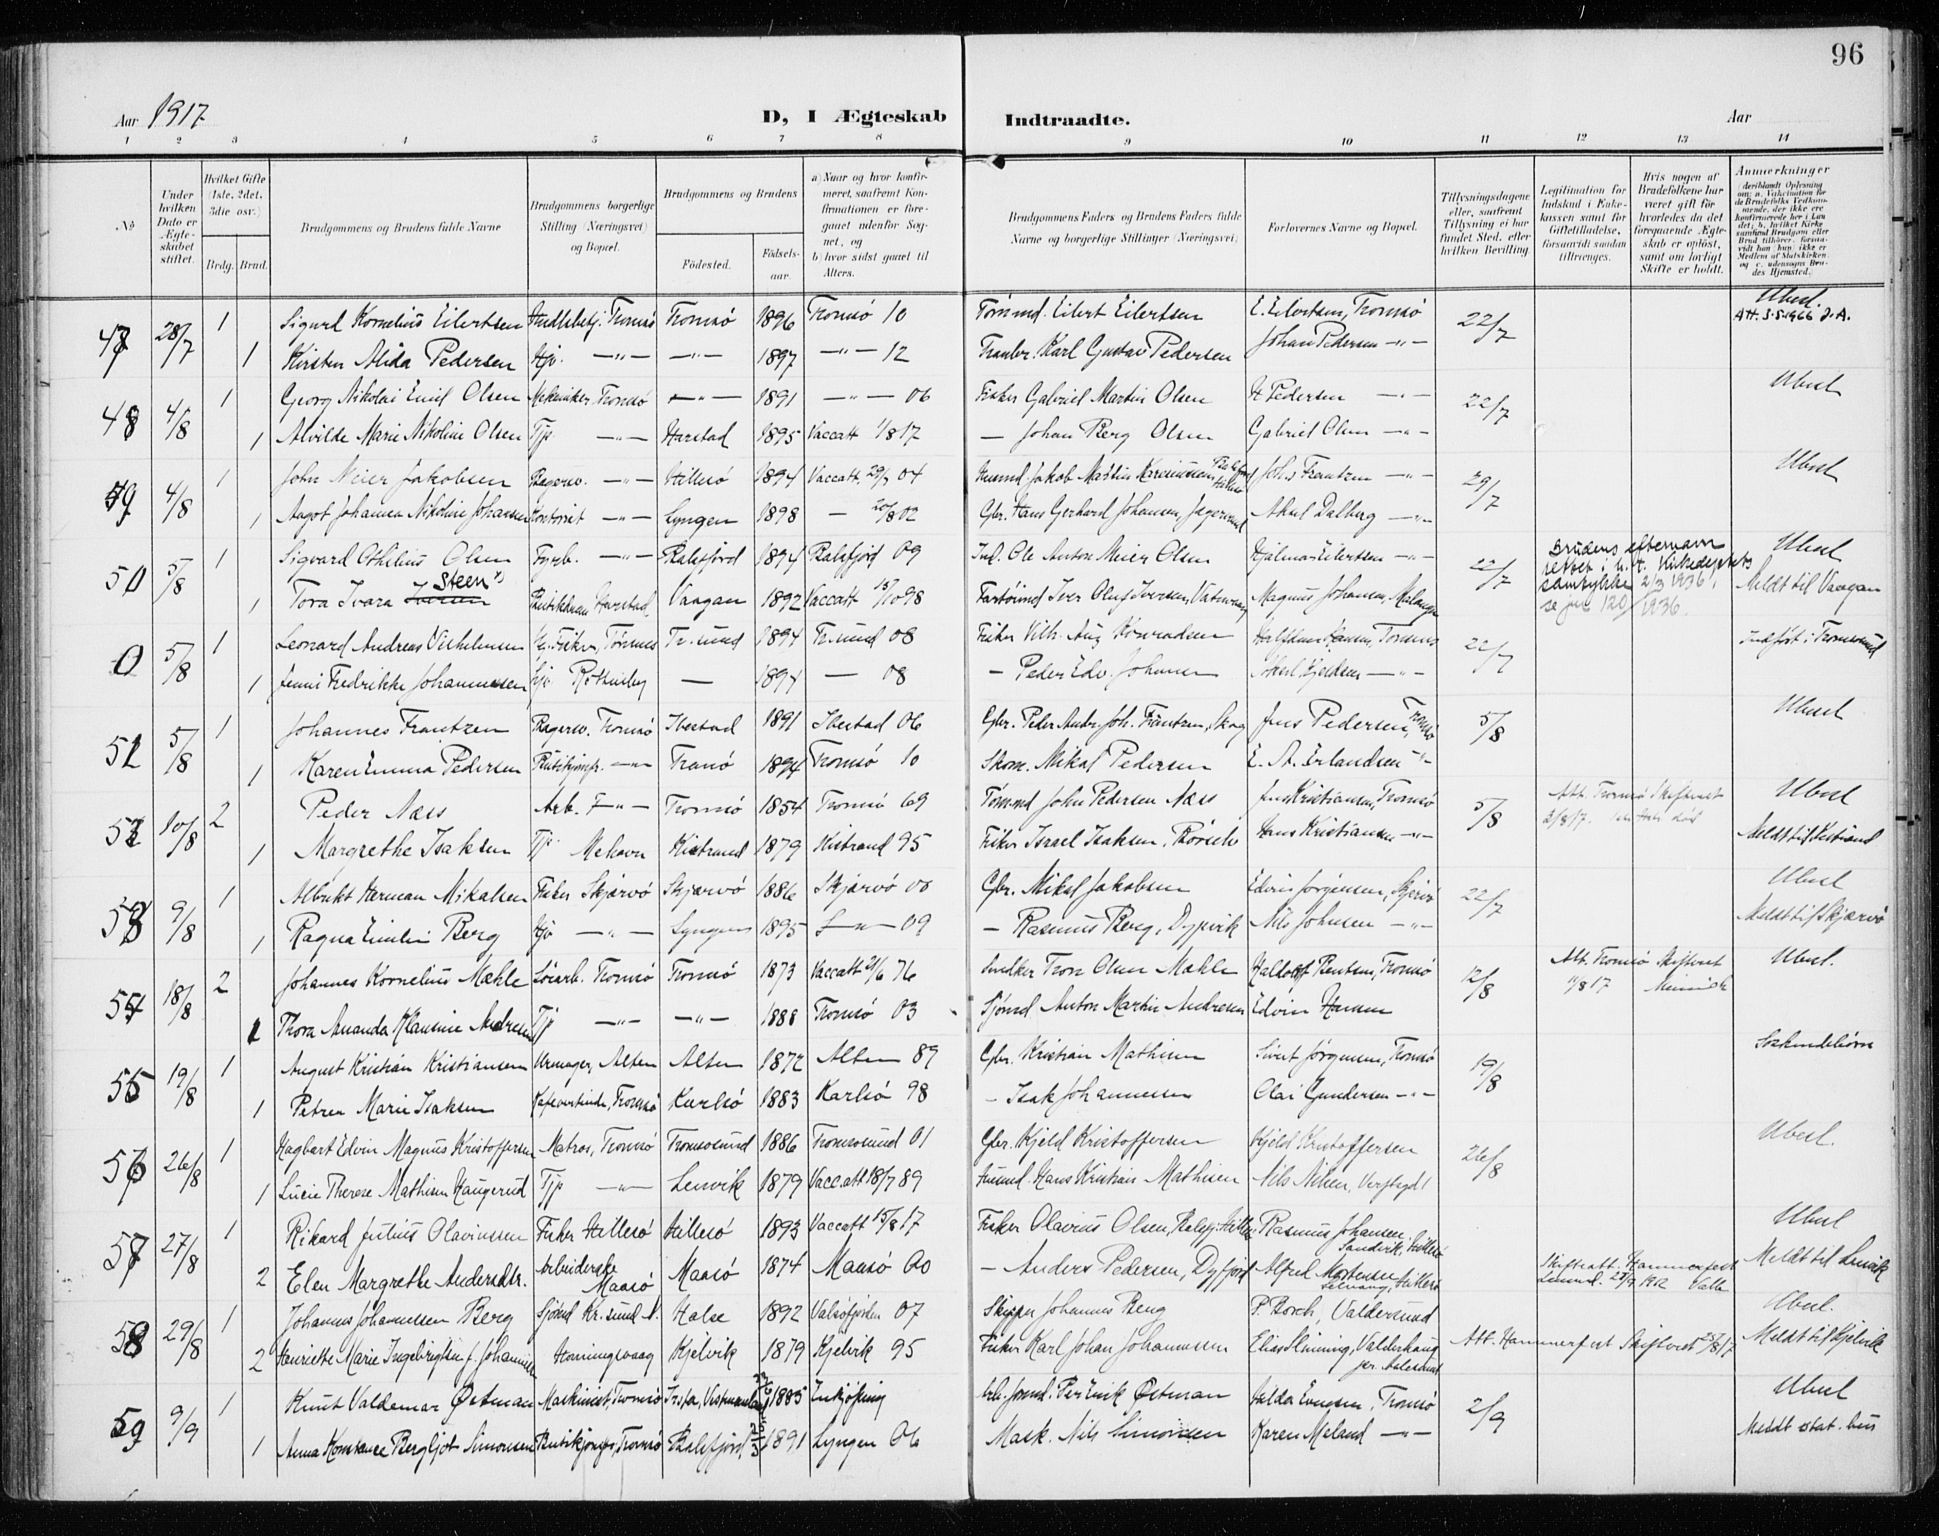 96
Aar 1917 D, I Ægteskab Indtraadte. Aar
1 2 3 4 5 6 7 8 9 10 11 12 13 14
No
Under hvilken Dato er Ægteskabet stiftet.
Hvilket Gifte (1ste, 2det, 3die osv.)
Brdg. Brud.
Brudgommens og Brudens fulde Navne
Brudgommens borgerlige Stilling (Næringsvei) og Bopæl.
Brudgommens og Brudens
Fødested. Fødselsaar.
a) Naar og hvor konfirmeret, saafremt Konfirmationen er foregaaet udenfor Sognet, og
b) hvor sidst gaaet til Alters.
Brudgommens Faders og Brudens Faders fulde Navne og borgerlige Stillinger (Næringsvei)
Forlovernes Navne og Bopæl.
Tillysningsdagene eller, saafremt Tillysning ei har fundet Sted, efter hvilken Bevilling
Legitimation for Indskud i Enkekassen samt for Giftetilladelse, forsaavidt saadan tiltrænges.
Hvis nogen af Brudefolkene har været gift før hvorledes da det foregaaende Ægteskab er opløst, samt om lovligt Skifte er holdt.
Anmerkninger
47 28/7 1 Sigurd Kornelius Eilertsen Handelsbetj. Tromsø Tromsø 1896 Tromsø 10 Tømmd. Eilert Eilertsen E. Eilertsen, Tromsø 22/7 Ubesl. Att. 3.5.1966 J.A.
1 Kirsten Alida Pedersen Hjv. —"— —"— 1897 —"— 12 Karl Gustav Pedersen Johan Pedersen —"—
48 4/8 1 Georg Nikolai Emil Olsen Mekaniker Tromsø —"— 1891 —"— 06 Fisker Gabriel Martin Olsen H Pedersen —"— 22/7 Ubesl
1 Alvilde Marie Nikoline Olsen Tjp. —"— Harstad 1895 Vaccatt 1/8 17 — Johan Berg Olsen Gabriel Olsen —"—
49 4/8 1 John Meier Jakobsen —"— Hillesø 1894 Vaccatt. 29/7 04 Jakob Martin Joh.s Frantzen —"— 29/7 Ubesl
1 Aagot Johanna Nikoline Johansen Kontorist —"— Lyngen 1898 — 20/8 02 Gbr. Hans Gerhard Johansen, Jægervand Aksel Dalberg —"—
50 5/8 1 Sigvard Othilius Olsen Fyrb. —"— Balsfjord 1894 Balsfjord 09 Ind. Ole Anton Meier Olsen Hjalmar Eilertsen —"— 22/7 Brudens efternavn rettet i h. t. Kirkedeptets samtykke 2/3 1936, se jnr 120/1936. Ubesl
1 Tora Ivara Iversen Steen Harstad Vaagan 1892 Vaccatt 98 Iver Oluf Iversen, Magnus Johansen, Malangen Meldt til Vaagan
0 5/8 1 Leonard Andreas Vilhelmsen Fisker, Tr.sund 1894 Tr.sund 08 Fisker Vilh. Aug Konradsen Halfdan Hansen, Tromsø 22/7 Indført i Tromsøsund
1 Jenni Fredrikke Johannessen Hjv. — 1894 — 08 — Peder Edv. Johansen —"—
51 5/8 1 Johannes Frantzen Tromsø Ibestad 1891 Ibestad 06 Gbr. Peder Andr. Joh. Frantzen, Skog Jens Pedersen, Tromsø 5/8 Ubesl
1 Karen Emma Pedersen Butikjomfr. —"— Tranø 1894 Tromsø 10 Skom. Mikal Pedersen E. A. Erlandsen —"—
52 10/8 2 Peder Næss Arb. T—"— Tromsø 1854 Tromsø 69 Tømmd John Pedersen Næss Jens Kristiansen, Tromsø 5/8 Att. Tromsø Skifteret 3/8 17. Ubesl
1 Margrethe Isaksen Tjp. Mehavn Kistrand 1879 Kistrand 95 Fisker Israel Isaksen, Hans Kristiansen —"— Meldt til Kistrand
53 9/8 1 Albrikt Herman Mikalsen Fisker Skjærvø Skjærvø 1886 Skjærvø 00 Gbr. Mikal Jakobsen Edvin Jørgensen, Skjervø 22/7 Ubesl
1 Ragna Emilie Berg Hjv —"— Lyngen 1895 L—"— 09 — Rasmus Berg, Dypvik Nils Johnsen —"— Meldt til Skjærvø
54 18/8 2 Johannes Kornelius Mæhle Løsarb. Tromsø Tromsø 1873 Vaccatt 21/6 76 Snedker Tron Olsen Mæhle Haldolf Bentsen, Tromsø 12/8 Att. Tromsø Skifteret 11/8 17 Ubesl.
1 Thora Amanda Klausine Andresen Tjp —"— —"— 1888 Tromsø 03 Sjømd Anton Martin Andresen Edvin Hansen
55 19/8 1 August Kristian Kristiansen Urmager, Alten Alten 1872 Alten 89 Gbr. Kristian Mathisen Sivert Jørgensen, Tromsø 19/8 Søskendebørn
1 Petrea Marie Isaksen Kafeværtinde, Tromsø Karlsø 1883 Karlsø 98 — Isak Johannessen Olai Gundersen —"—
56 26/8 1 Hagbart Edvin Magnus Kristoffersen Matros, Tromsø Tromsøsund 1886 Tromsøsund 01 Gbr. Kjeld Kristoffersen Kjeld Kristoffersen 26/8 Ubesl.
1 Lucie Therese Mathisen Haugerud Tjp —"— Lenvik 1879 Vacc.att 18/7 89 Husmd. Hans Kristian Mathisen Nils Nilsen,
57 27/8 1 Rikard Julius Olavinssen Fisker Hillesø Hillesø 1893 Vaccatt 15/8 17 Fisker Olavius Olsen, Rasmus Johansen, Sandvik, Hillesø Ubesl
2 Elen Margrethe Andersdtr. Arbeiderske Maasø Maasø 1874 Maasø 90 — Anders Pedersen, Dyfjord Alfred Mortensen, Hillesø Skifteatt. Hammerfest 1912 Meldt til Lenvik
58 29/8 1 Johannes Johannessen Berg Sjømd Kr.sund N. Halse 1892 Valsøfjorden 07 Skipper Johannes Berg P. Borch, Valdersund Ubesl.
2 Henriette Marie Ingebrigtsen f. Johannessen Honningsvaag Kjelvik 1879 Kjelvik 95 Fisker Karl Johan Johannessen Elias Slinning, Valderhaug pr. Aalesund Att. Hammerfest Skifteret 17 Meldt til Kjelvik
59 9/9 1 Knut Valdemar Østman Maskinist, Tromsø 1885 Enkjøping Per Erik Østman Halda Evensen, Tromsø 2/9 Ubesl
1 Anna Konstance Bergljot Simonsen Tromsø Balsfjord, 1891 Lyngen 06 Mask. Nils Simonsen Karen Meland —"— Meldt stat. bur